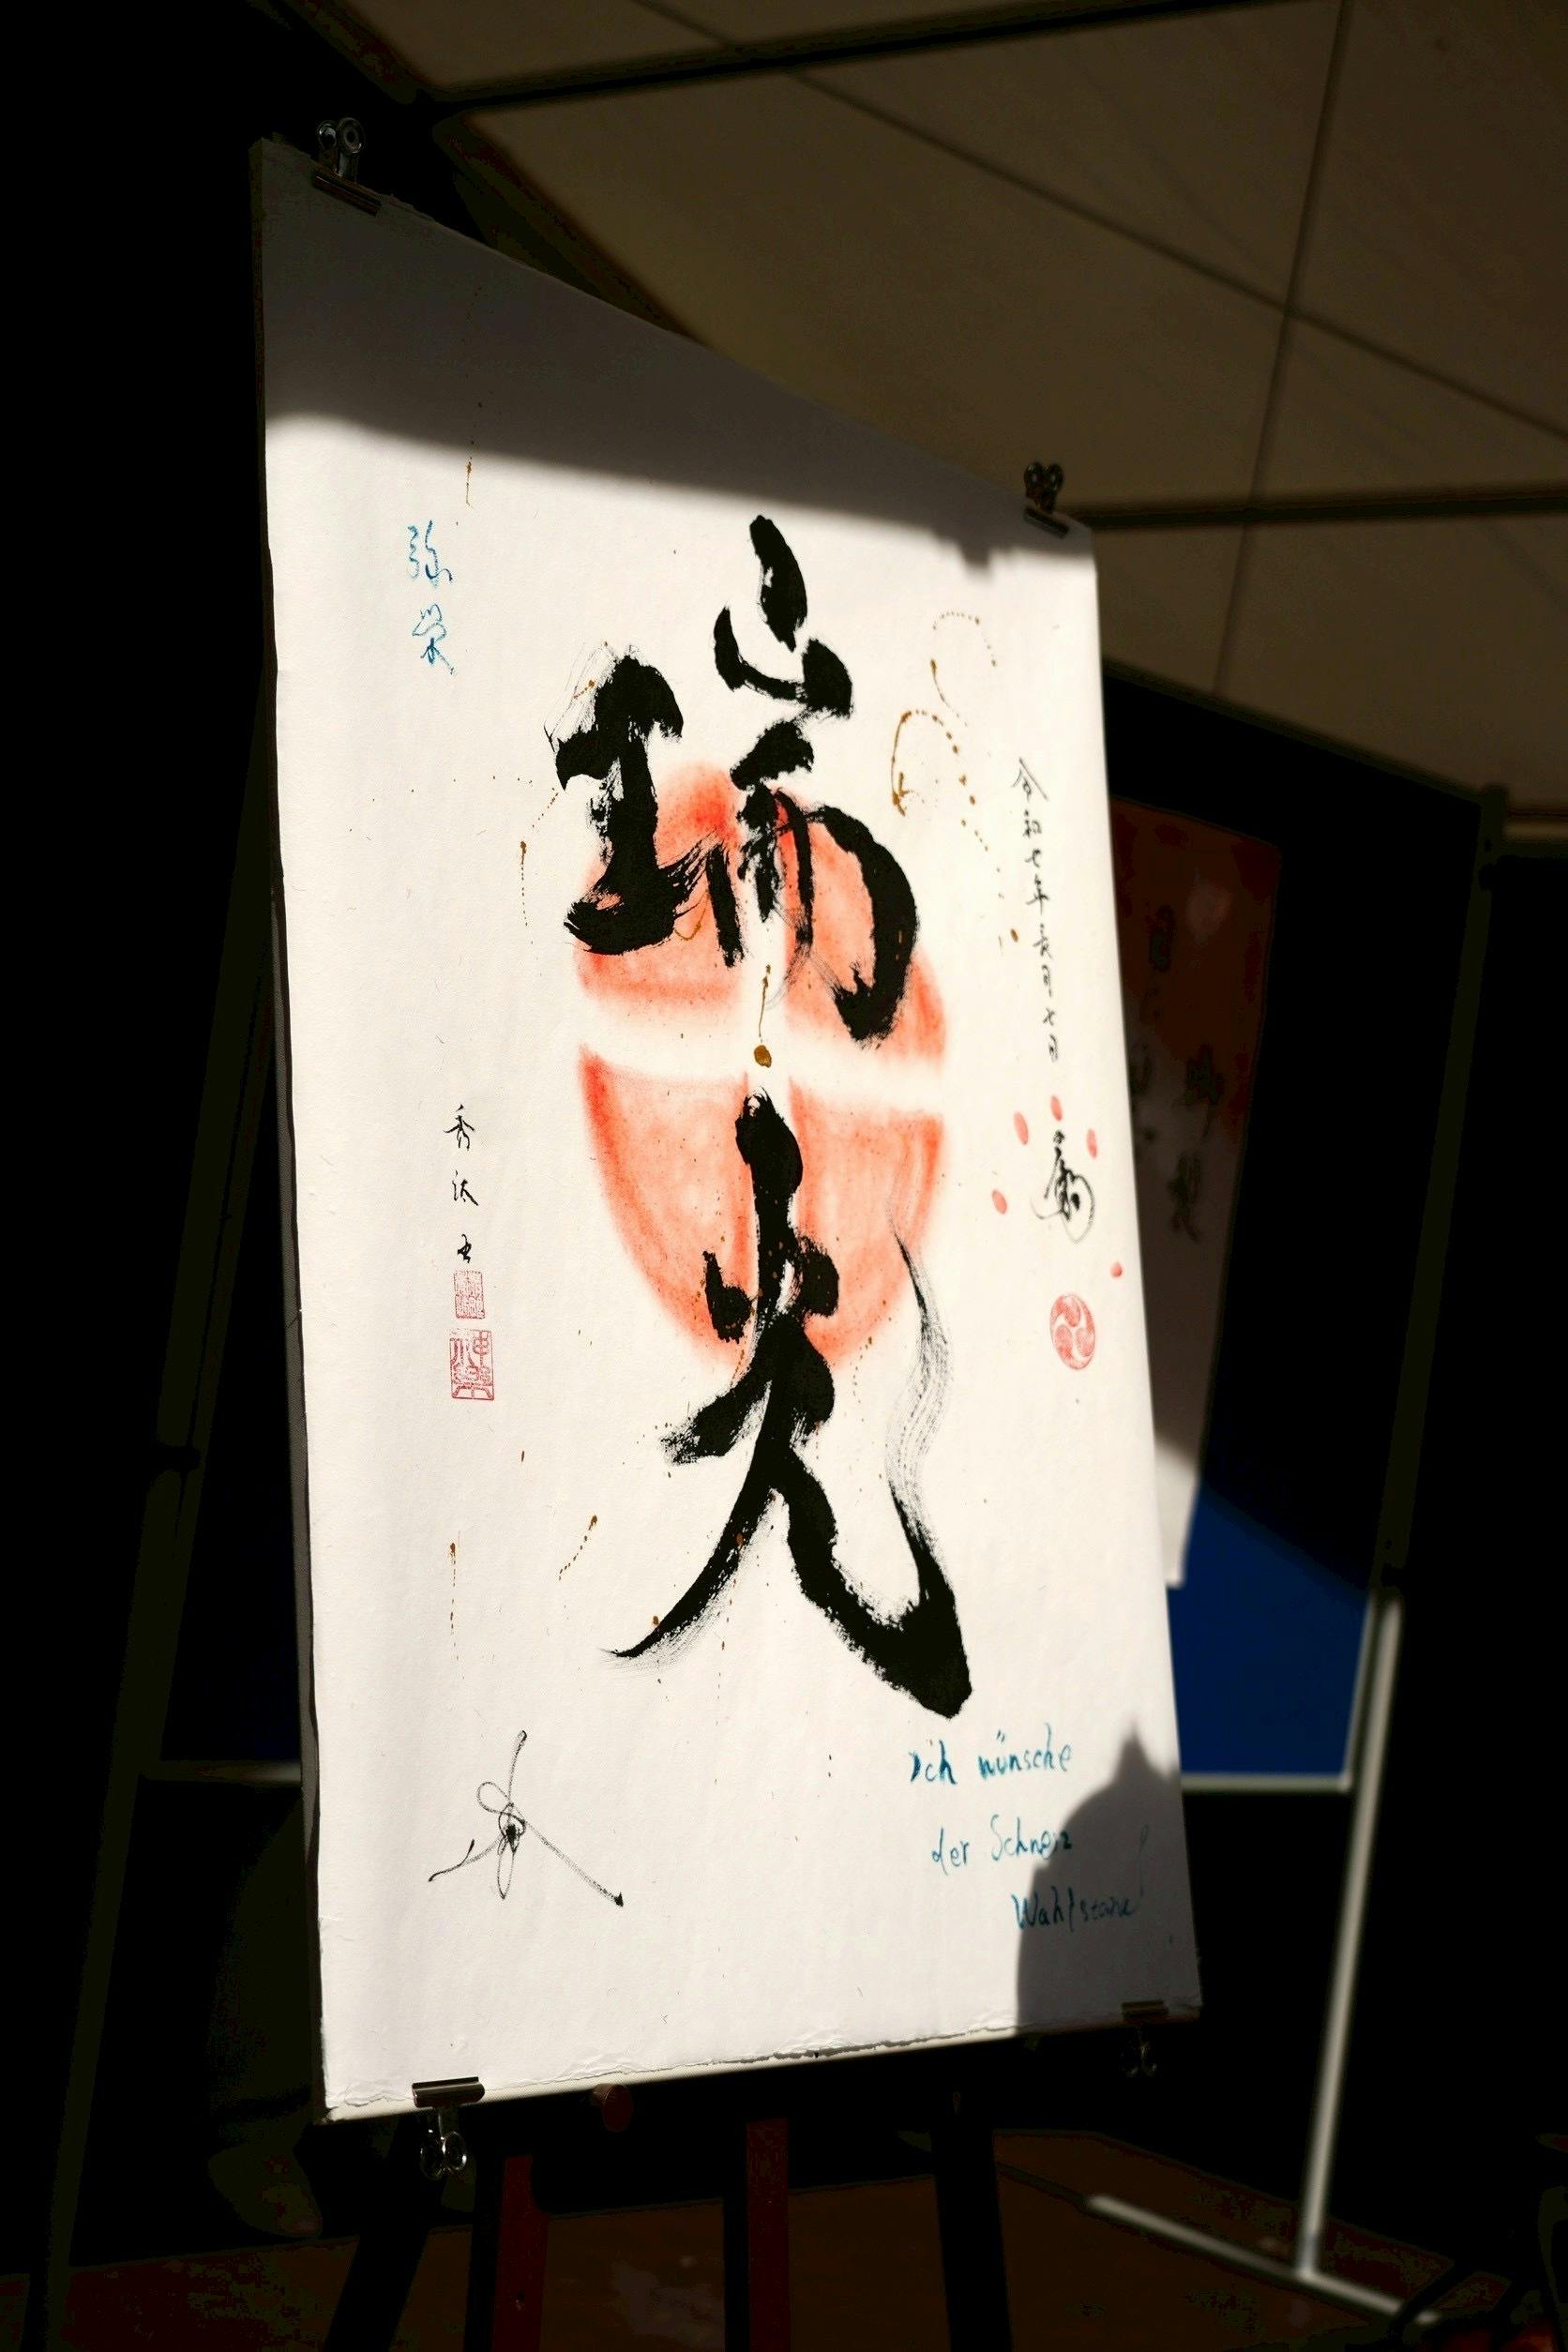 令和七年長月七日
瑞光
弥栄
秀汰
Ich wünsche
der Schweiz
Wahlstand